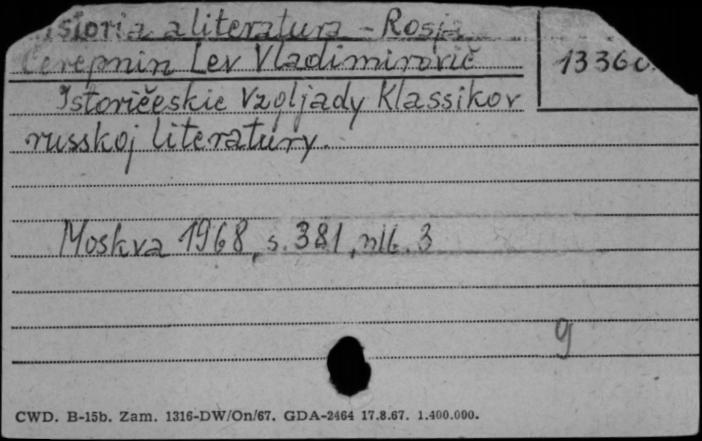 istoria a literatura - Rosja
Čerepnin Lev Vladimirovič
13360
Istoričeskie Vzgljady Klassikov
russkoj literatury.
Moskva 1968, s. 381, nlb. 3
g
CWD. B-15b. Zam. 1316-DW/On/67. GDA-2464 17.8.67. 1.400.000.